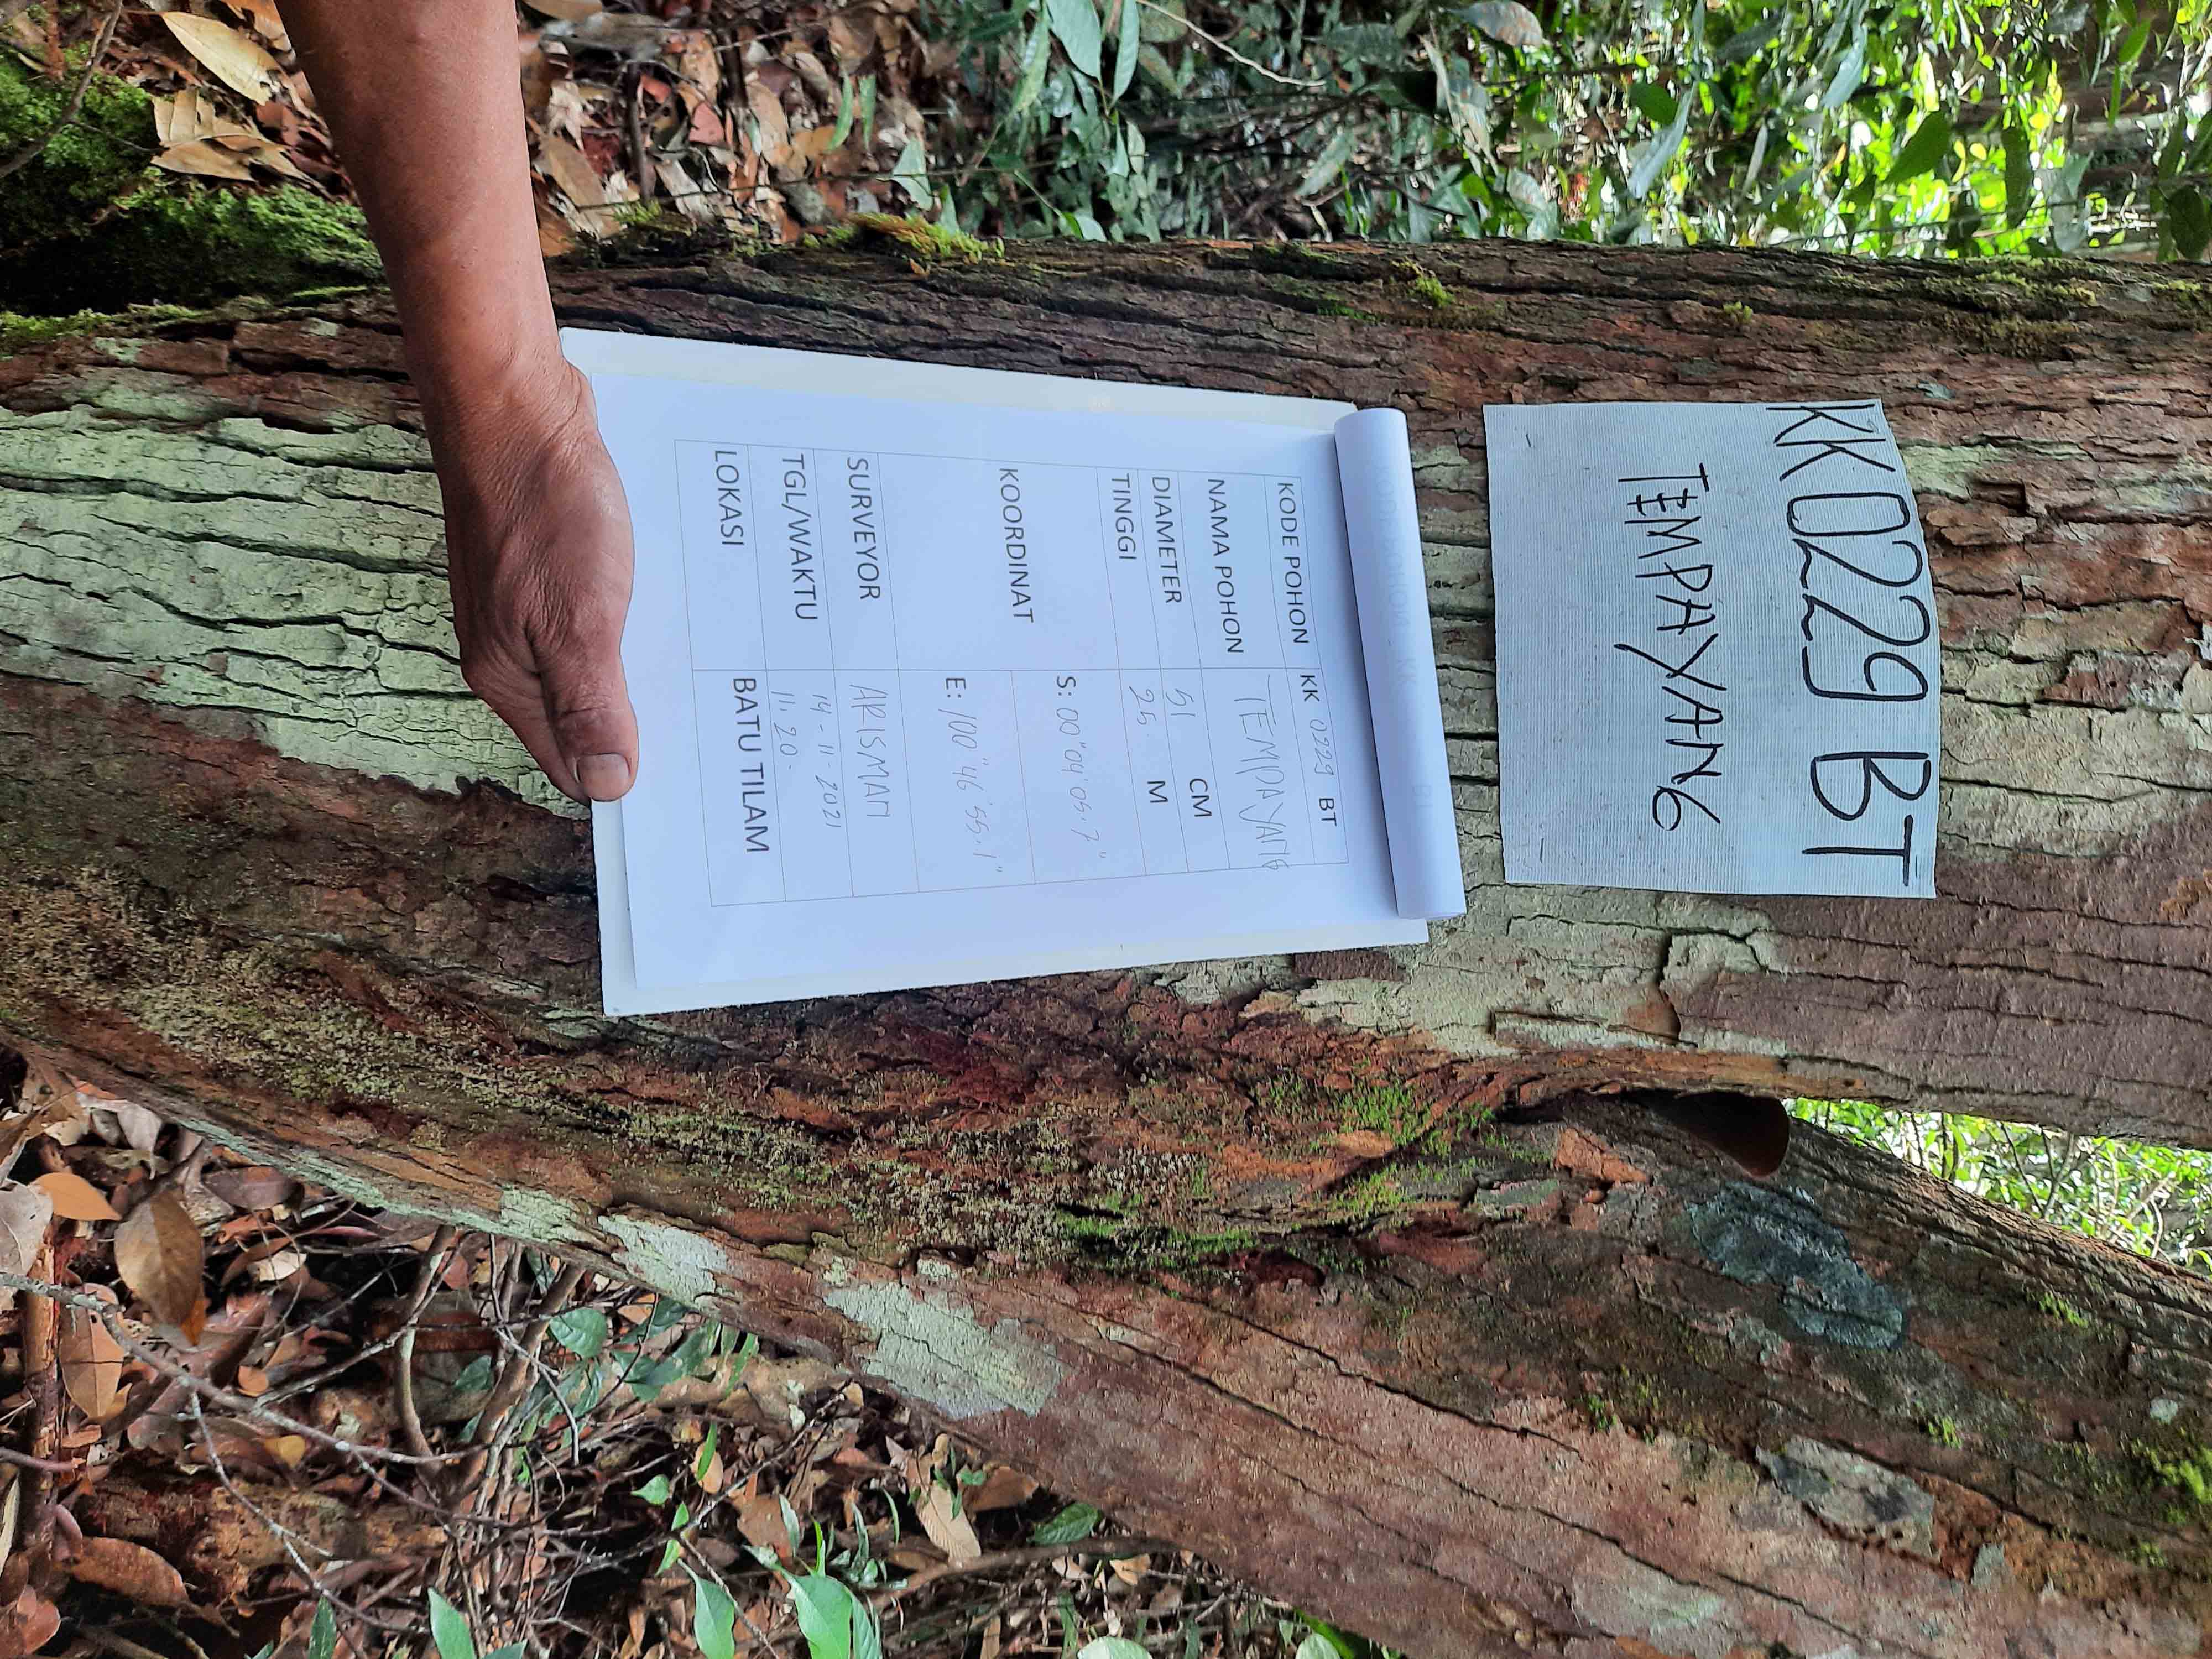 KK0229 BT
TEMPAYANG
KODE POHON KK 0229 BT
NAMA POHON TEMPAYANG
DIAMETER 51 CM
TINGGI 25 M
KOORDINAT S: 00°04'05.7"
E: 100°46'55.1"
SURVEYOR ARISMAN
TGL/WAKTU 14-11-2021
11.20.
LOKASI BATU TILAM